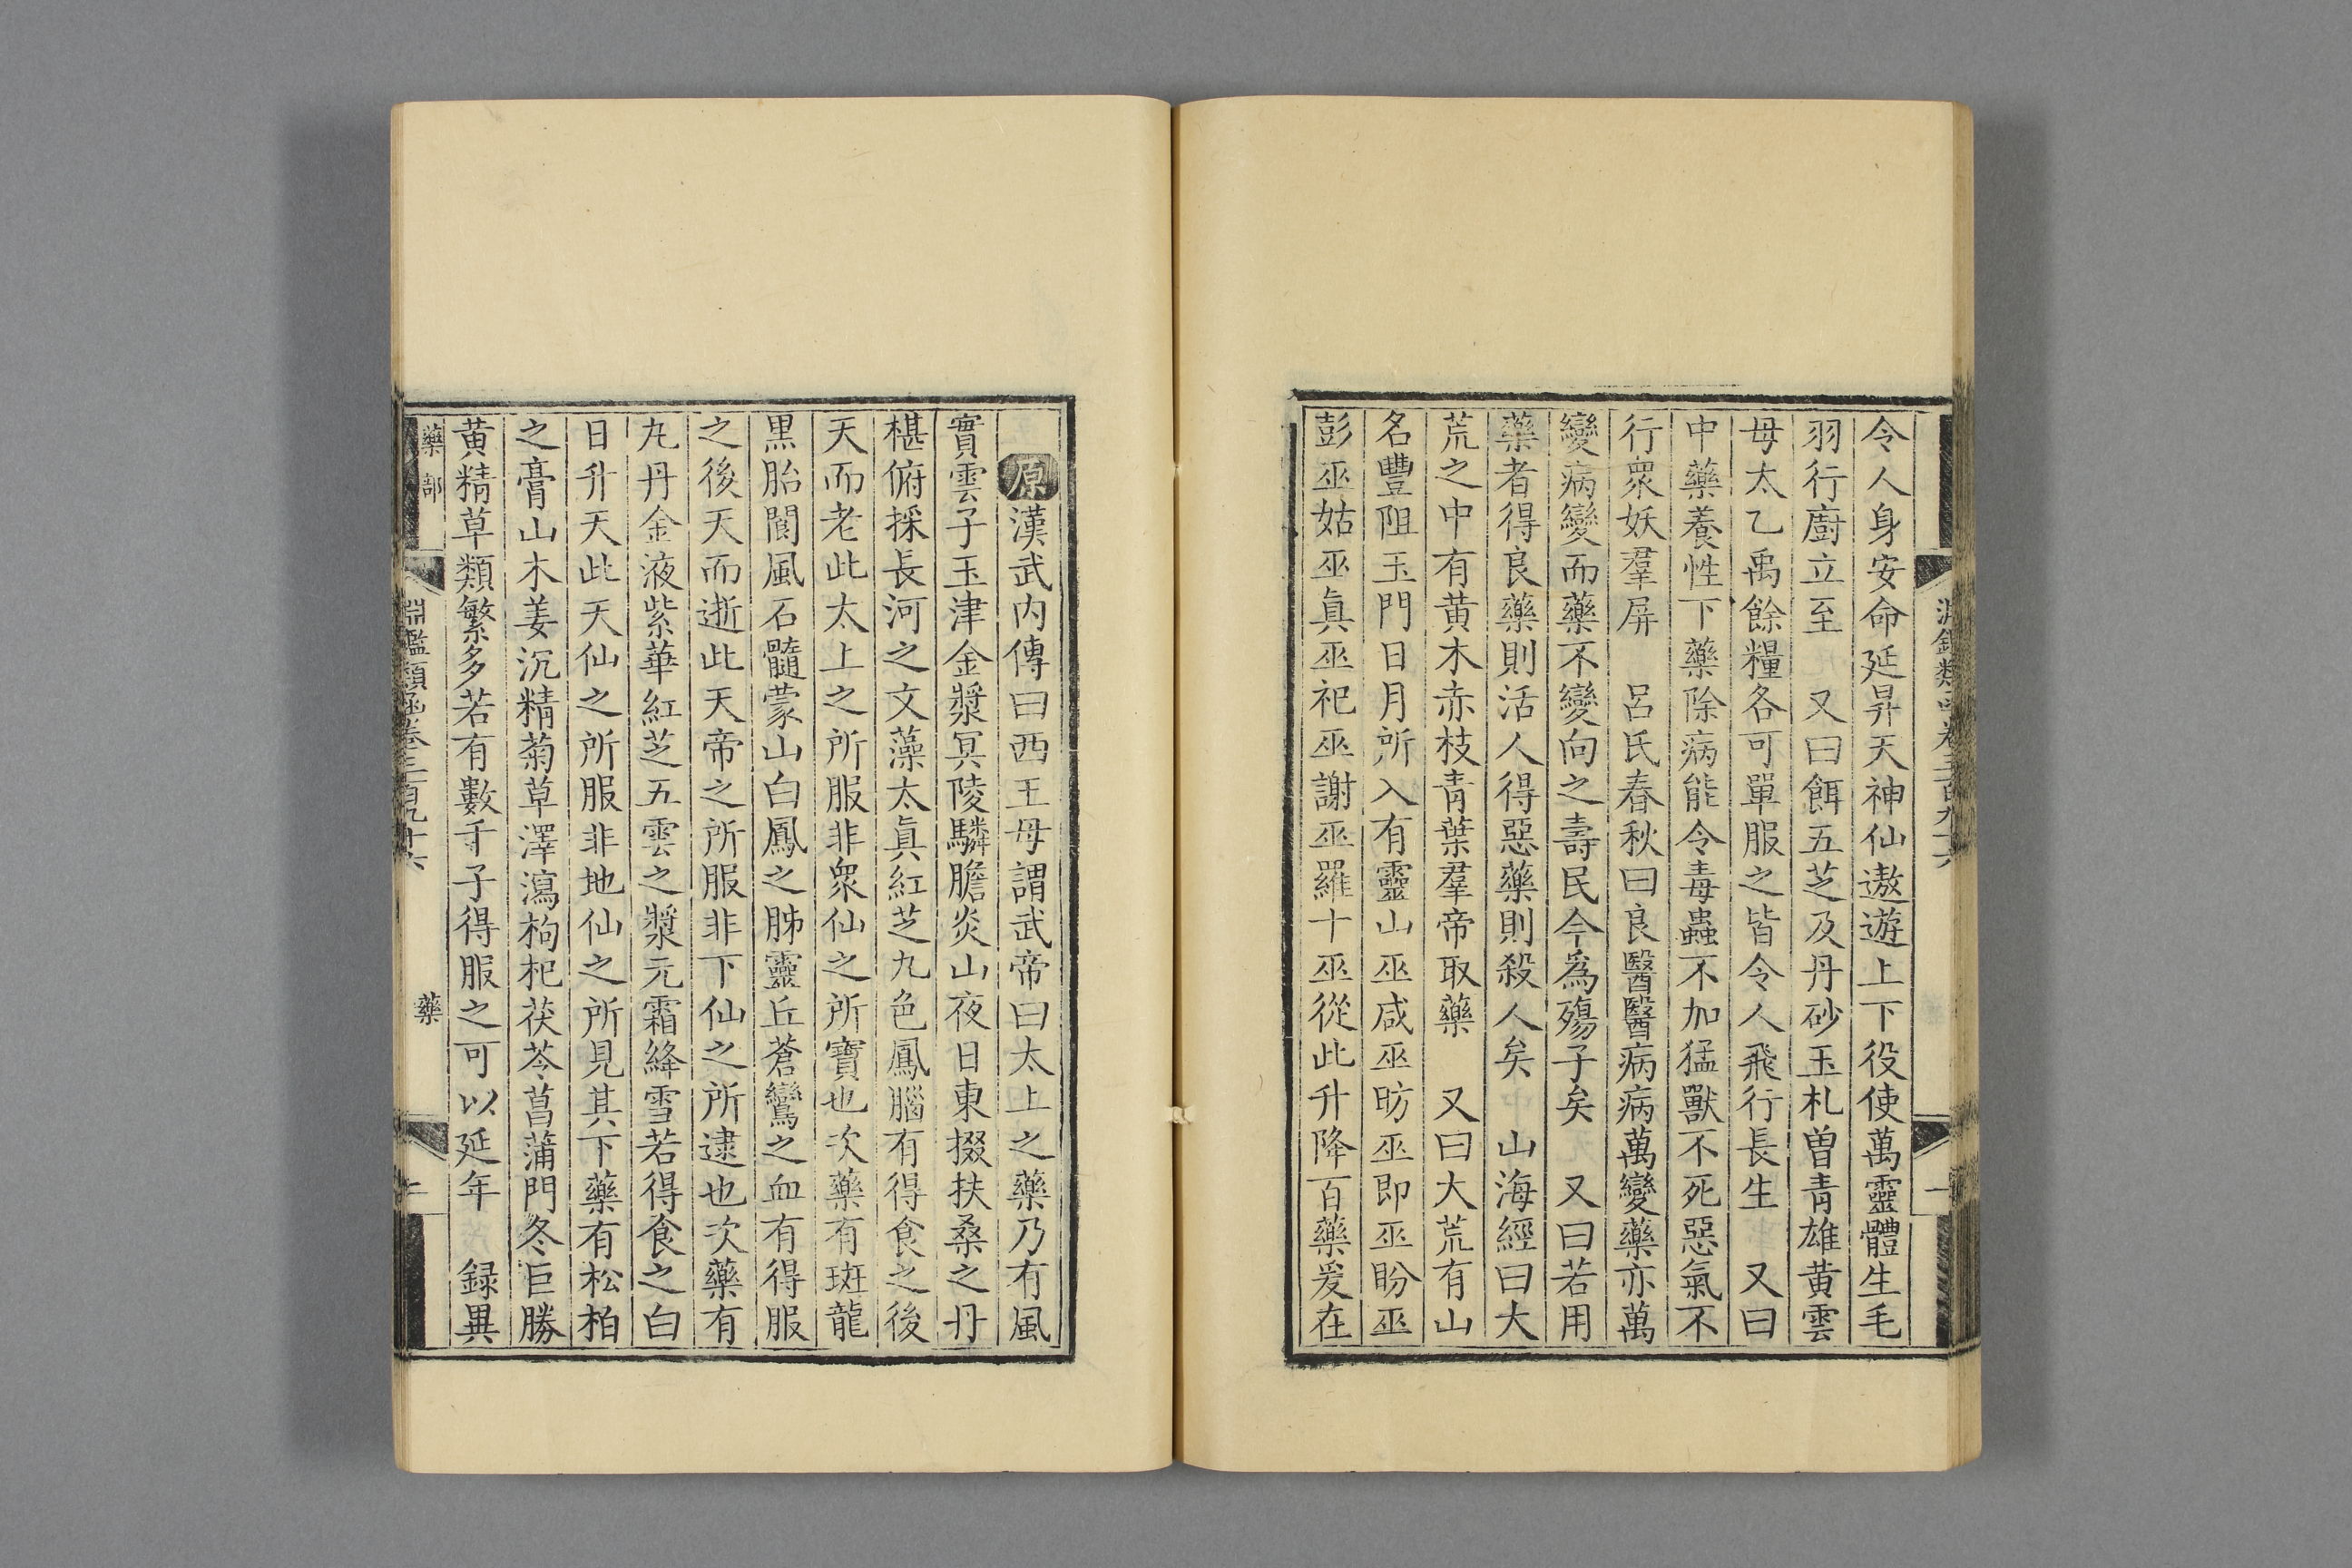 令人身安命延昇天神仙遨遊上下役使萬靈體生毛
羽行廚立至　又曰餌五芝及丹砂玉札曽青雄黄雲
母太乙禹餘糧各可單服之皆令人飛行長生　又曰
中藥養性下藥除病能令毒蟲不加猛獸不死惡氣不
行衆妖羣屏　呂氏春秋曰良醫醫病病萬變藥亦萬
變病變而藥不變向之壽民今爲殤子矣　又曰若用
藥者得良藥則活人得惡藥則殺人矣　山海經曰大
荒之中有黄木赤枝青葉羣帝取藥　又曰大荒有山
名豐阻玉門日月所入有靈山巫咸巫昉巫即巫盼巫
彭巫姑巫眞巫祀巫謝巫羅十巫從此升降百藥爰在
原漢武内傳曰西王母謂武帝曰太上之藥乃有風
實雲子玉津金漿冥陵驎膽炎山夜日東掇扶桑之丹
椹俯採長河之文藻太眞紅芝九色鳳腦有得食之後
天而老此太上之所服非衆仙之所寶也次藥有斑龍
黒胎閬風石髓蒙山白鳳之胏靈丘蒼鸞之血有得服
之後天而逝此天帝之所服非下仙之所逮也次藥有
九丹金液紫華紅芝五雲之漿元霜絳雪若得食之白
日升天此天仙之所服非地仙之所見其下藥有松柏
之膏山木姜沉精菊草澤瀉枸杞茯苓菖蒲門冬巨勝
黄精草類繁多若有數千子得服之可以延年　録異
藥部
淵鑑類函卷三百九十六
藥
二